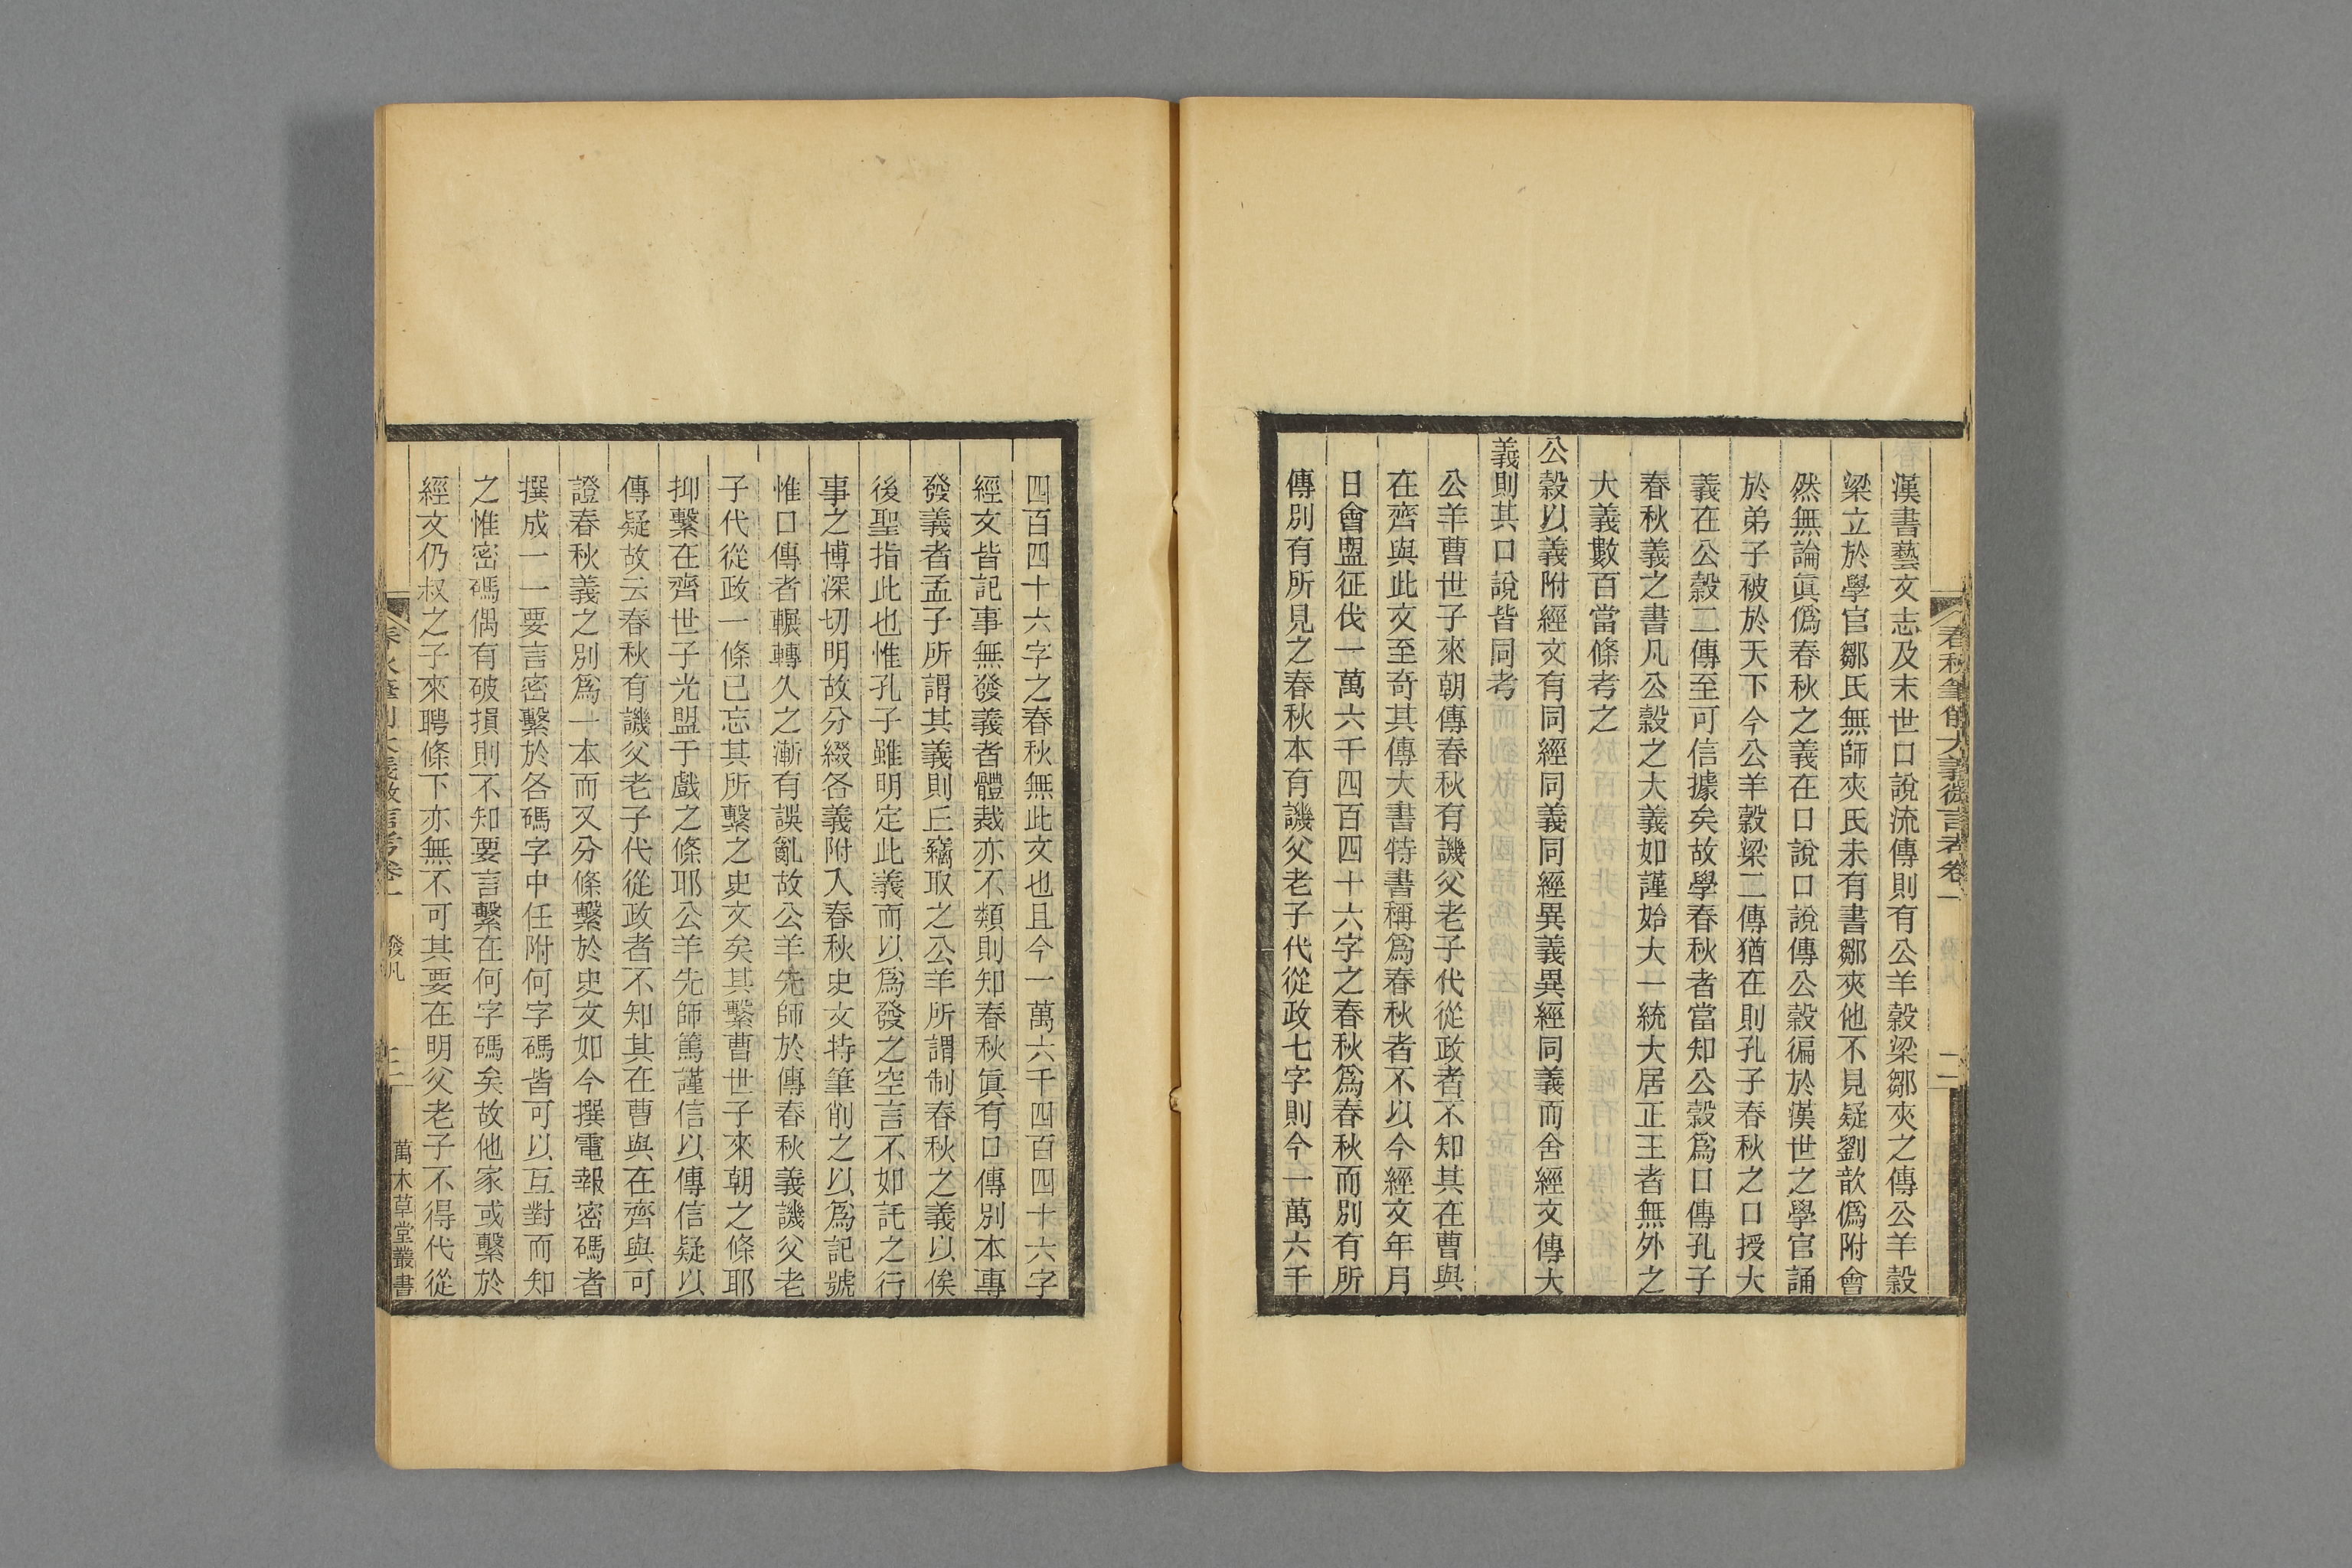 春秋筆削大義微言考卷一
漢書藝文志及末世口說流傳則有公羊穀梁鄒夾之傳公羊穀
梁立於學官鄒氏無師夾氏未有書鄒夾他不見疑劉歆僞附會
然無論眞僞春秋之義在口說口說傳公穀徧於漢世之學官誦
於弟子被於天下今公羊穀梁二傳猶在則孔子春秋之口授大
義在公穀二傳至可信據矣故學春秋者當知公穀爲口傳孔子
春秋義之書凡公穀之大義如謹始大一統大居正王者無外之
大義數百當條考之
公穀以義附經文有同經同義同經異義異經同義而舍經文傳大
義則其口說皆同考
公羊曹世子來朝傳春秋有譏父老子代從政者不知其在曹與
在齊與此文至奇其傳大書特書稱爲春秋者不以今經文年月
日會盟征伐一萬六千四百四十六字之春秋爲春秋而別有所
傳別有所見之春秋本有譏父老子代從政七字則今一萬六千
四百四十六字之春秋無此文也且今一萬六千四百四十六字
經文皆記事無發義者體裁亦不類則知春秋眞有口傳別本專
發義者孟子所謂其義則丘竊取之公羊所謂制春秋之義以俟
後聖指此也惟孔子雖明定此義而以爲發之空言不如託之行
事之博深切明故分綴各義附入春秋史文特筆削之以爲記號
惟口傳者輾轉久之漸有誤亂故公羊先師於傳春秋義譏父老
子代從政一條已忘其所繫之史文矣其繫曹世子來朝之條耶
抑繫在齊世子光盟于戲之條耶公羊先師篤謹信以傳信疑以
傳疑故云春秋有譏父老子代從政者不知其在曹與在齊與可
證春秋義之別爲一本而又分條繫於史文如今撰電報密碼者
撰成一一要言密繫於各碼字中任附何字碼皆可以互對而知
之惟密碼偶有破損則不知要言繫在何字碼矣故他家或繫於
經文仍叔之子來聘條下亦無不可其要在明父老子不得代從
發凡
萬木草堂叢書